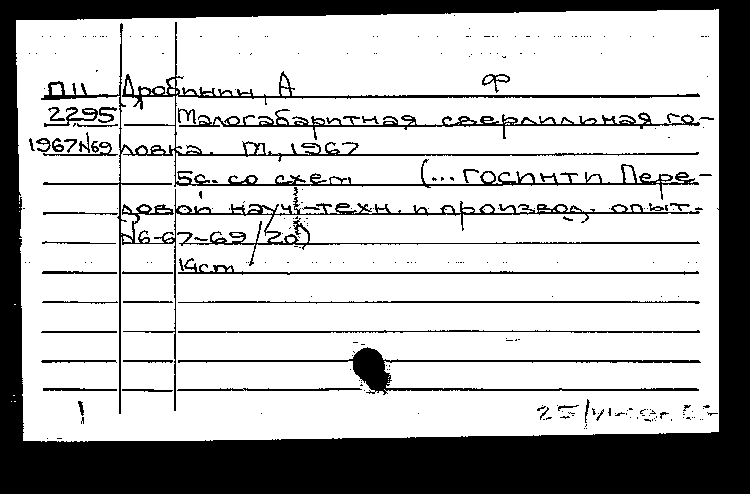 П11 Дробинин, А Ф
2295 Малогабаритная сверлильная го-
1967№69 ловка. М., 1967
5с. со схем (...ГОСИНТИ. Пере-
довой науч.-техн. и производ. опыт.
№6-67-69/20)
14cm
1 25/VI